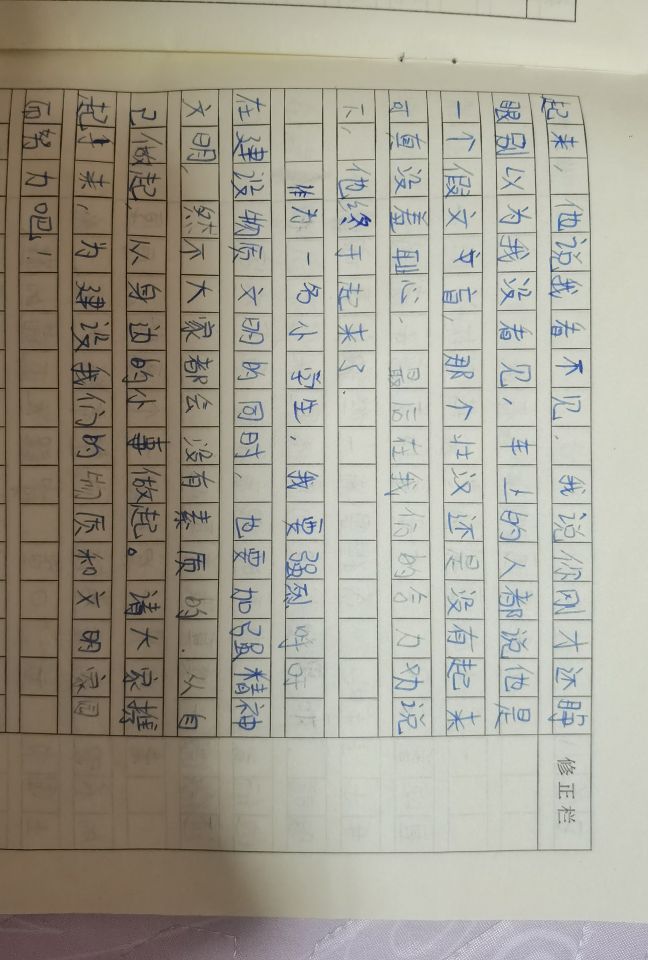 起来，他说我看不见．我说你刚才还睁
眼别以为我没看见，车上的人都说他是
一个假文文盲，那个壮汉还是没有起来
可真没羞耻心．最后在我们的合力劝说
下，他终于起来了．
作为一名小学生，我要强烈呼吁
在建设物质文明的同时，也要加强精神
文明，然不大家都会没有素质的．从自
己做起，以身边的小事做起。请大家携
起手来，为建设我们的物质和文明家园
而努力吧！
修正栏